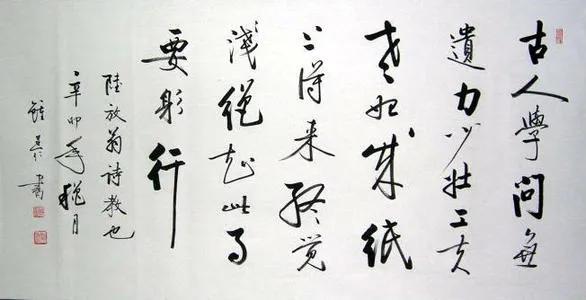 古人學問無
遺力少壯工夫
老始成紙
上得来終覺
淺絕知此事
要躬行
陸放翁詩教也
辛卯年穐月
書